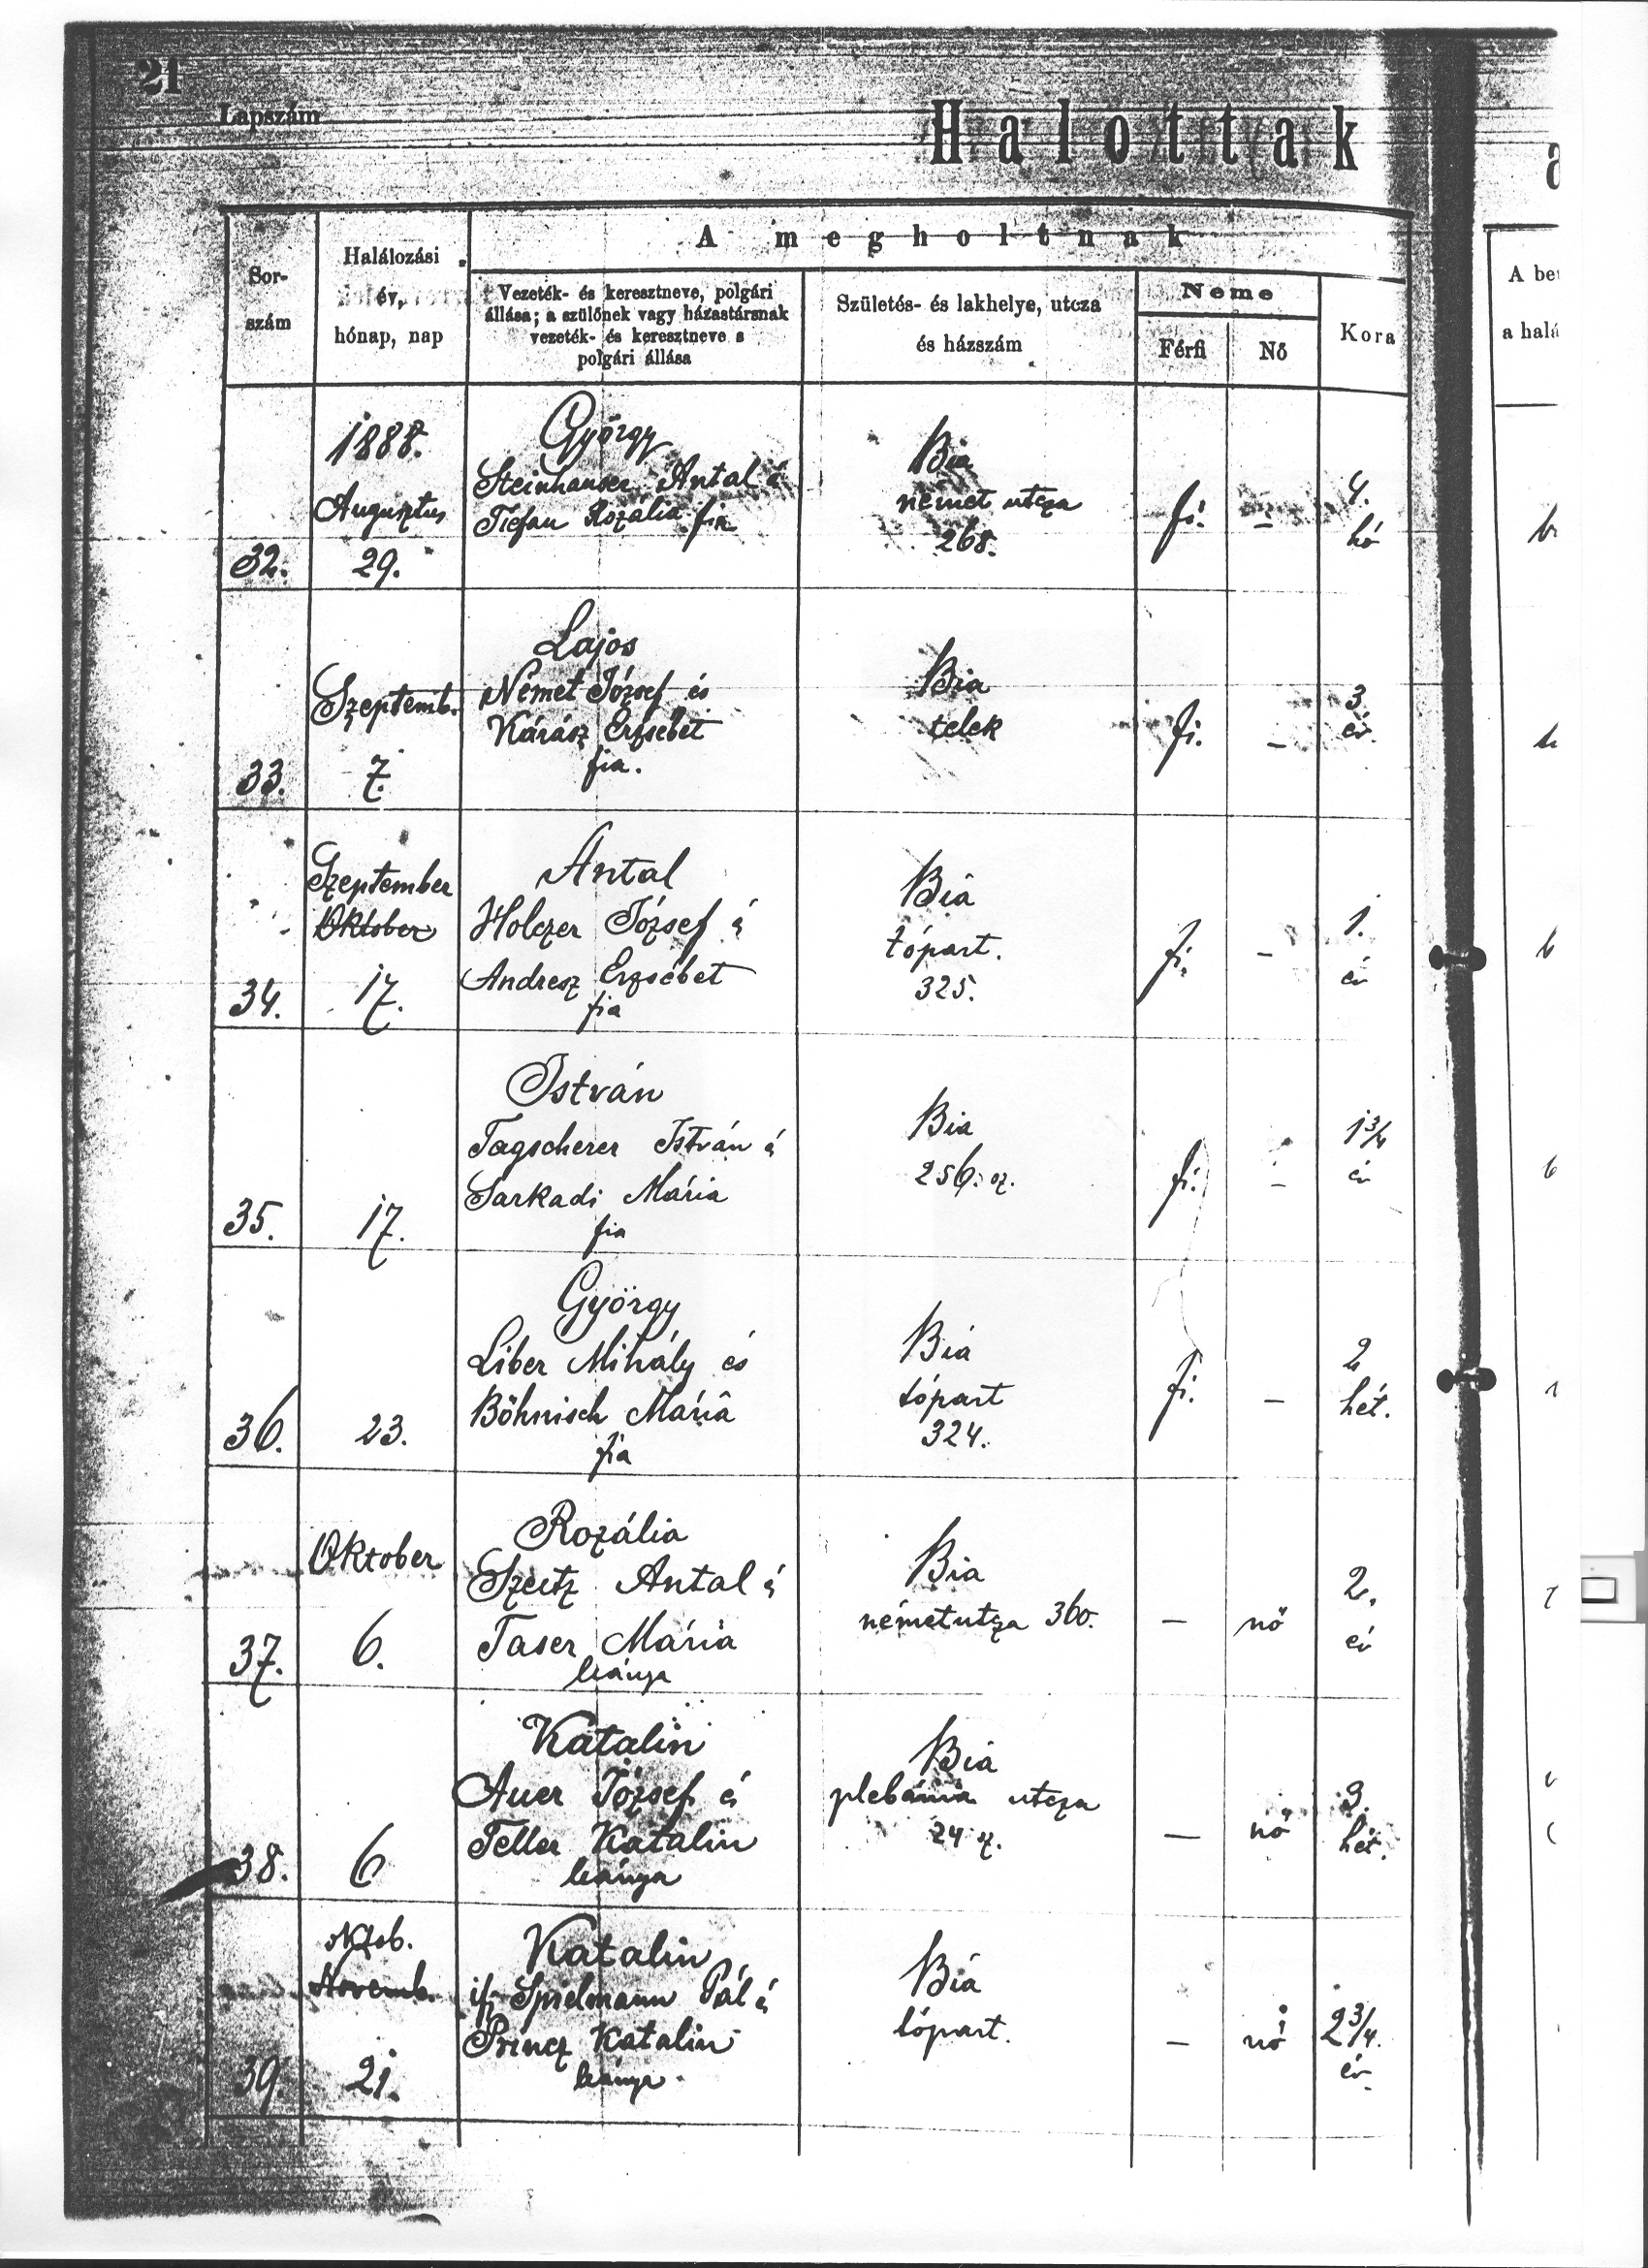 21
Lapszám
Halottak
A megholtnak
Sor-
szám
Halálozási
év,
hónap, nap
Vezeték- és keresztneve, polgári
állása; a szülőnek vagy házastársnak
vezeték- és keresztneve s
polgári állása
Születés- és lakhelye, utcza
és házszám
Neme
Férfi
Nő
Kora
A be
a halá
32.
1888.
Augusztus
29.
György
Steinhauser Antal é
Rozália fia
Bia
német utcza
268.
fi.
–
4.
hó
33.
Szeptemb.
7.
Lajos
Német József és
Kárász Erzsébet
fia.
Bia
telek
fi.
–
3
év
34.
Szeptember
Oktober
17.
Antal
Holczer József é
Andresz Erzsébet
fia
Bia
tópart.
325.
fi.
–
1.
év
35.
17.
István
Tagscherer István é
Sarkadi Mária
fia
Bia
256. sz.
fi.
–
1 3/4
év
36.
23.
György
Liber Mihály és
Böhnisch Mária
fia
Bia
tópart
324.
fi.
–
2
hét.
37.
Oktober
6.
Rozália
Szeitz Antal é
Taser Mária
leánya
Bia
németutcza 360.
–
nő
2.
év
38.
6
Katalin
Auer József é
Teller Katalin
leánya
Bia
plebánia utcza
24 sz.
–
nő
3.
hét.
39.
Novemb.
21.
Katalin
ifj Spielmann Pál é
Princz Katalin
leánya
Bia
tópart.
–
nő
2 3/4.
év